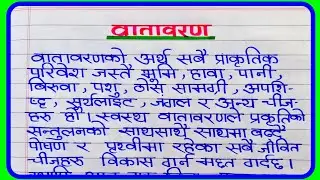 वातावरण
वातावरणको अर्थ सबै प्राकृतिक
परिवेश जस्तै भूमि, हावा, पानी,
बिरुवा, पशु, ठोस सामग्री, अपशि-
ष्ट, सूर्यलाइट, जंगल र अन्य चीज-
हरु हो। स्वस्थ वातावरणले प्रकृतिको
सन्तुलनको साथसाथै साथमा बढ्दै
पोषण र पृथ्वीमा रहेका सबै जीवित
चीजहरु विकास गर्न मद्दत गर्दछ।